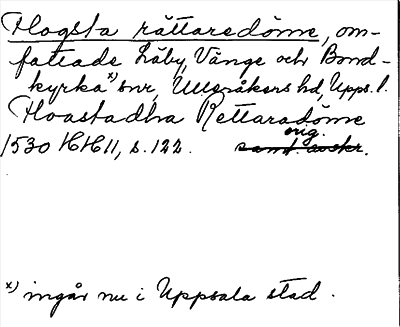 Flogsta rättaredöme, om-
fattade Läby, Vänge och Bond-
kyrka x) snr, Ulleråkers hd, Upps. l.
Floastadha Rettaradöme
orig.
1530 HH 11, s. 122. samt. avskr.
x) ingår nu i Uppsala stad.